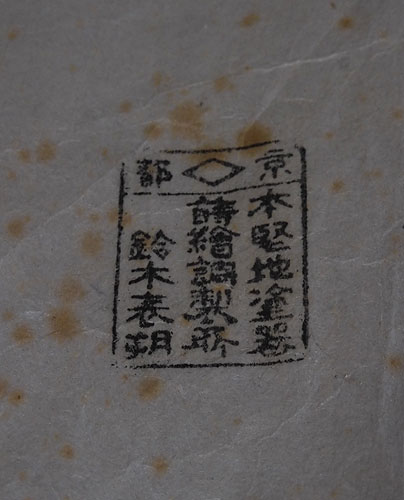 京都
本堅地塗器
蒔繪調製所
鈴木表朔